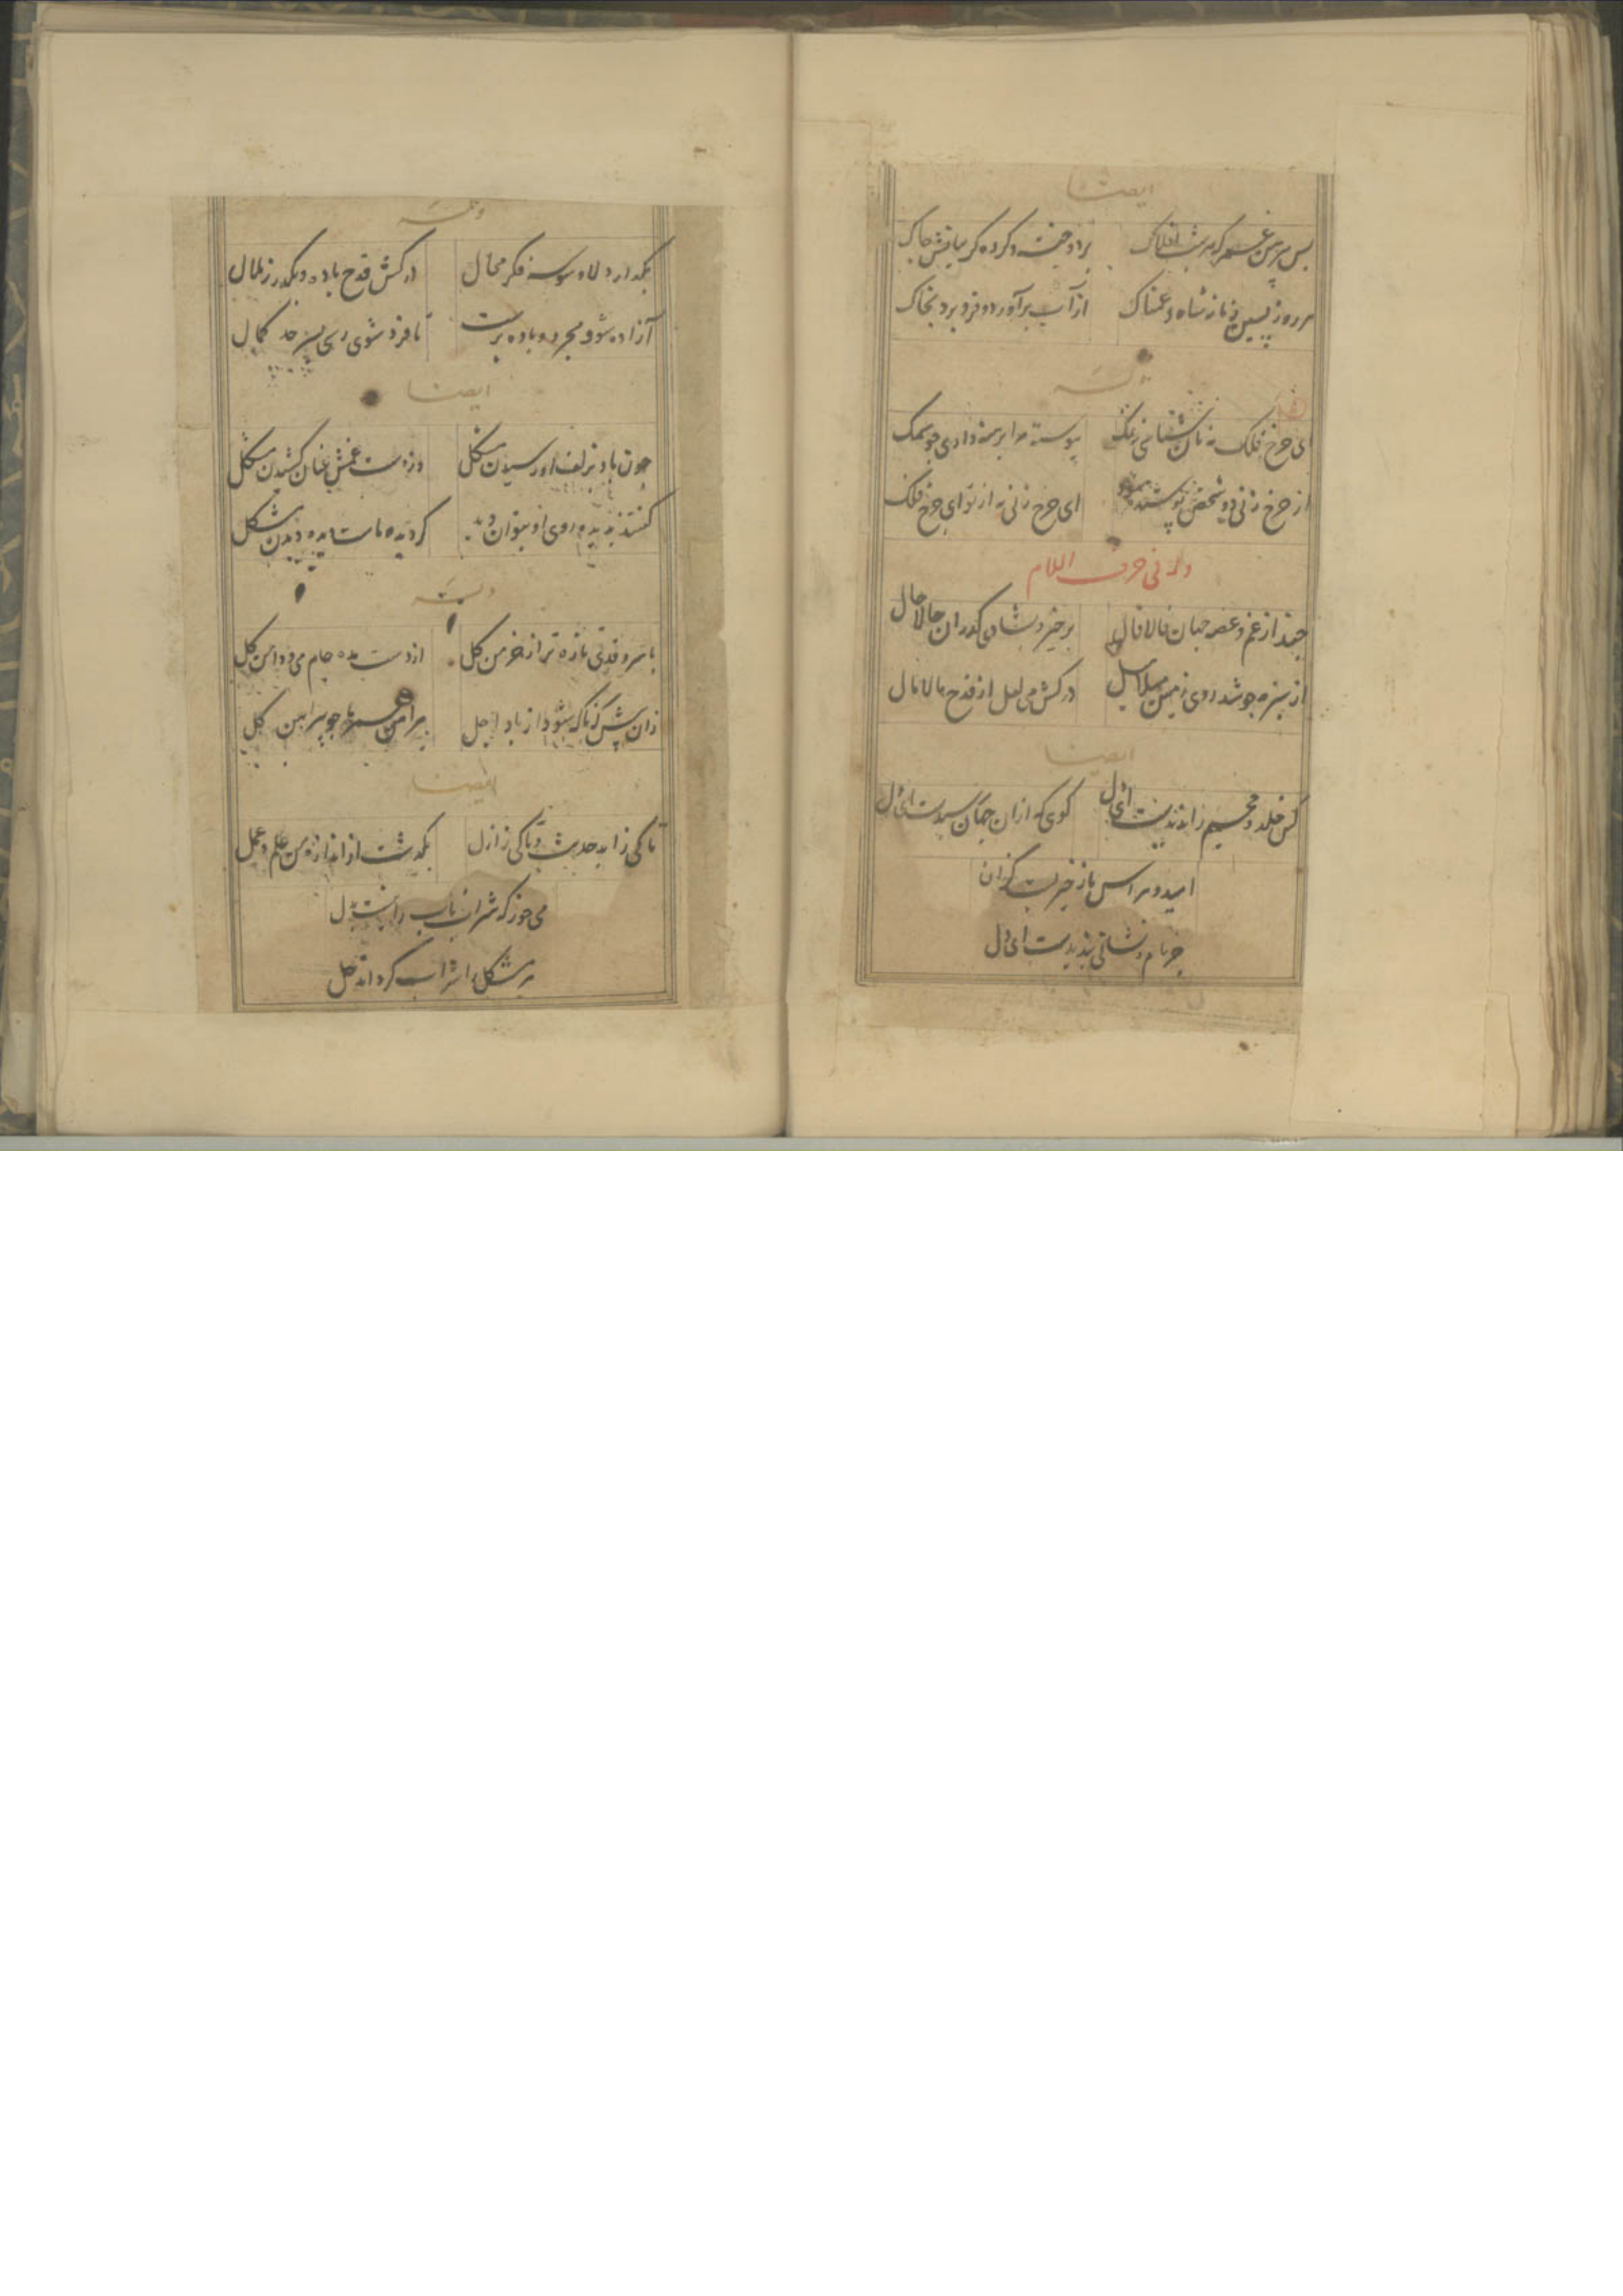 ایضا
بس پیرهن عمر که هر شب افلاک بر دوخت و کرده گریبانش چاک
هر روز بسی زمانه شاد و غمناک از آب برآورد و فرو برد بخاک
وله
ای چرخ فلک نه نان شناسی نه نمک پیوسته مرا برهنه داری چو سمک
از چرخ زنی دو شخص پوشیده شود ای چرخ زنی به از تو ای چرخ فلک
وله فی حرف اللام
چند از غم و غصه جهان قالاقال برخیز و بشادی گذران حالاحال
از سبزه چو شد روی زمین میلامیل درکش می لعل از قدح مالامال
ایضا
کس خلد و جحیم را ندیدست ای دل گوی که از ان جهان رسیدست ای دل
امید و هراس ما ز چیزیست کزان
جز نام و نشانی نه پدیدست ای دل
وله
بگذار دلا وسوسه فکر محال درکش قدح باده و بگذر ز ملال
آزاده شو و مجرد و باده پرست تا فرد شوی رسی بسرحد کمال
ایضا
چون باد بزلف او رسیدن مشکل وز دست غمش عنان کشیدن مشکل
گفتند بدیده روی او بتوان دید گر دیده ماست دیده دیدن مشکل
وله
با سرو قدی تازه تر از خرمن گل از دست مده جام می و دامن گل
زان پیش که ناکه شود از باد اجل پیراهن عمر ما چو پیراهن گل
ایضا
تا کی ز ابد حدیث و تا کی ز ازل بگذشت از اندازه من علم و عمل
می خور که شراب ناب را نیست بدل
هر مشکل را شراب گرداند حل